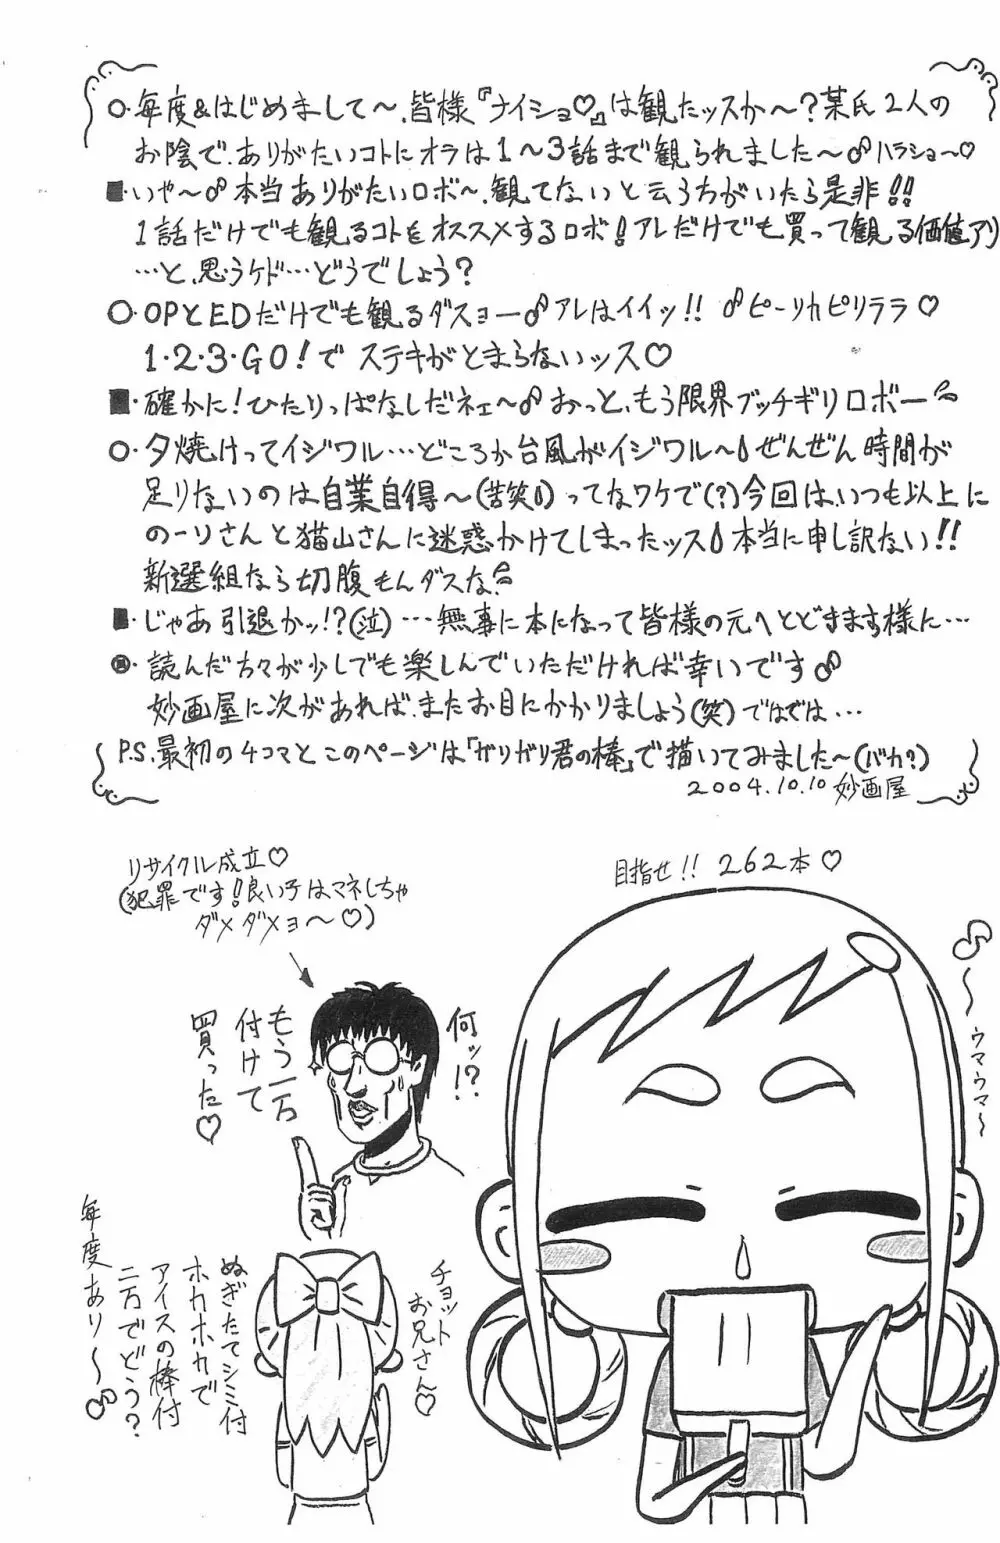 ○・毎度&はじめまして〜.皆様『ナイショ♡』は観たッスか〜?某氏2人の
お陰で.ありがたいコトにオラは1〜3話まで観られました〜♂ハラショ〜♡
■・いや〜♂本当ありがたいロボ〜.観てないと云う方がいたら是非!!
1話だけでも観るコトをオススメするロボ!アレだけでも買って観る価値アリ
…と、思うケド…どうでしょう?
○・OPとEDだけでも観るダスョー♂アレはイイッ!! ♂ピーリカピリララ♡
1・2・3・GO!で ステキがとまらないッス♡
■・確かに!ひたりっぱなしだネェ〜♂おっと、もう限界ブッチギリロボー
○・夕焼けってイジワル…どころか台風がイジワル〜ぜんぜん時間が
足りないのは自業自得〜(苦笑)ってなワケで(?)今回は、いつも以上に
のーりさんと猫山さんに迷惑かけてしまったッス本当に申し訳ない!!
新選組なら切腹もんダスな.
■・じゃあ引退かッ!?(泣)…無事に本になって皆様の元へとどきます様に…
◉・読んだ方々が少しでも楽しんでいただければ幸いです♂
妙画屋に次があれば.またお目にかかりましょう(笑)ではでは…
P.S.最初の4コマとこのページは「ガリガリ君の棒」で描いてみました〜(バカ?)
2004.10.10 妙画屋
目指せ!! 262本♡
〜ウマウマ〜